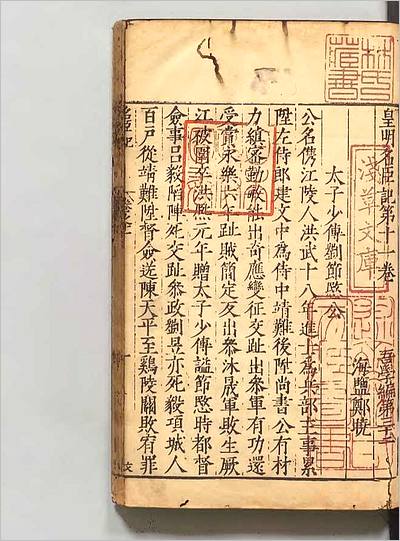 皇明名臣記第十一卷
吾學編第三十一
海鹽鄭曉
太子少傅劉節愍公
公名儁江陵人洪武十八年進士爲兵部主事累
陞左侍郎建文中爲侍中靖難後陞尚書公有材
力縝密勤敏壯出奇應變征交趾出叅軍有功還
受賞永樂六年趾賊簡定反出叅沐晟軍敗生厥
江被圍卒洪熙元年贈太子少傅謚節愍時都督
僉事吕毅陷陣死交趾叅政劉昱亦死毅項城人
百戸從靖難陞督僉送陳天平至鷄陵關敗宥罪
名臣記
林氏藏書
淺草文庫